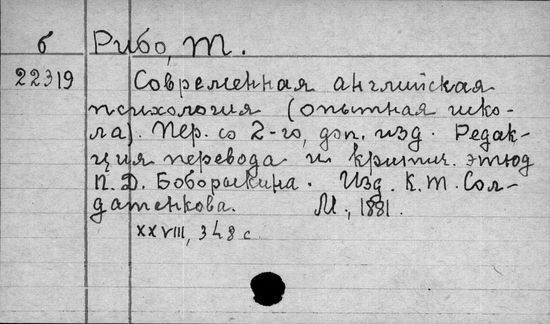 б Рибо, Т.
22319 Современная английская
психология (опытная шко-
ла). Пер. со 2-го, доп. изд. Редак-
ция перевода и критич. этюд
П. Д. Боборыкина. Изд. К. Т. Сол-
датенкова. М., 1881.
XXVIII, 348 с.